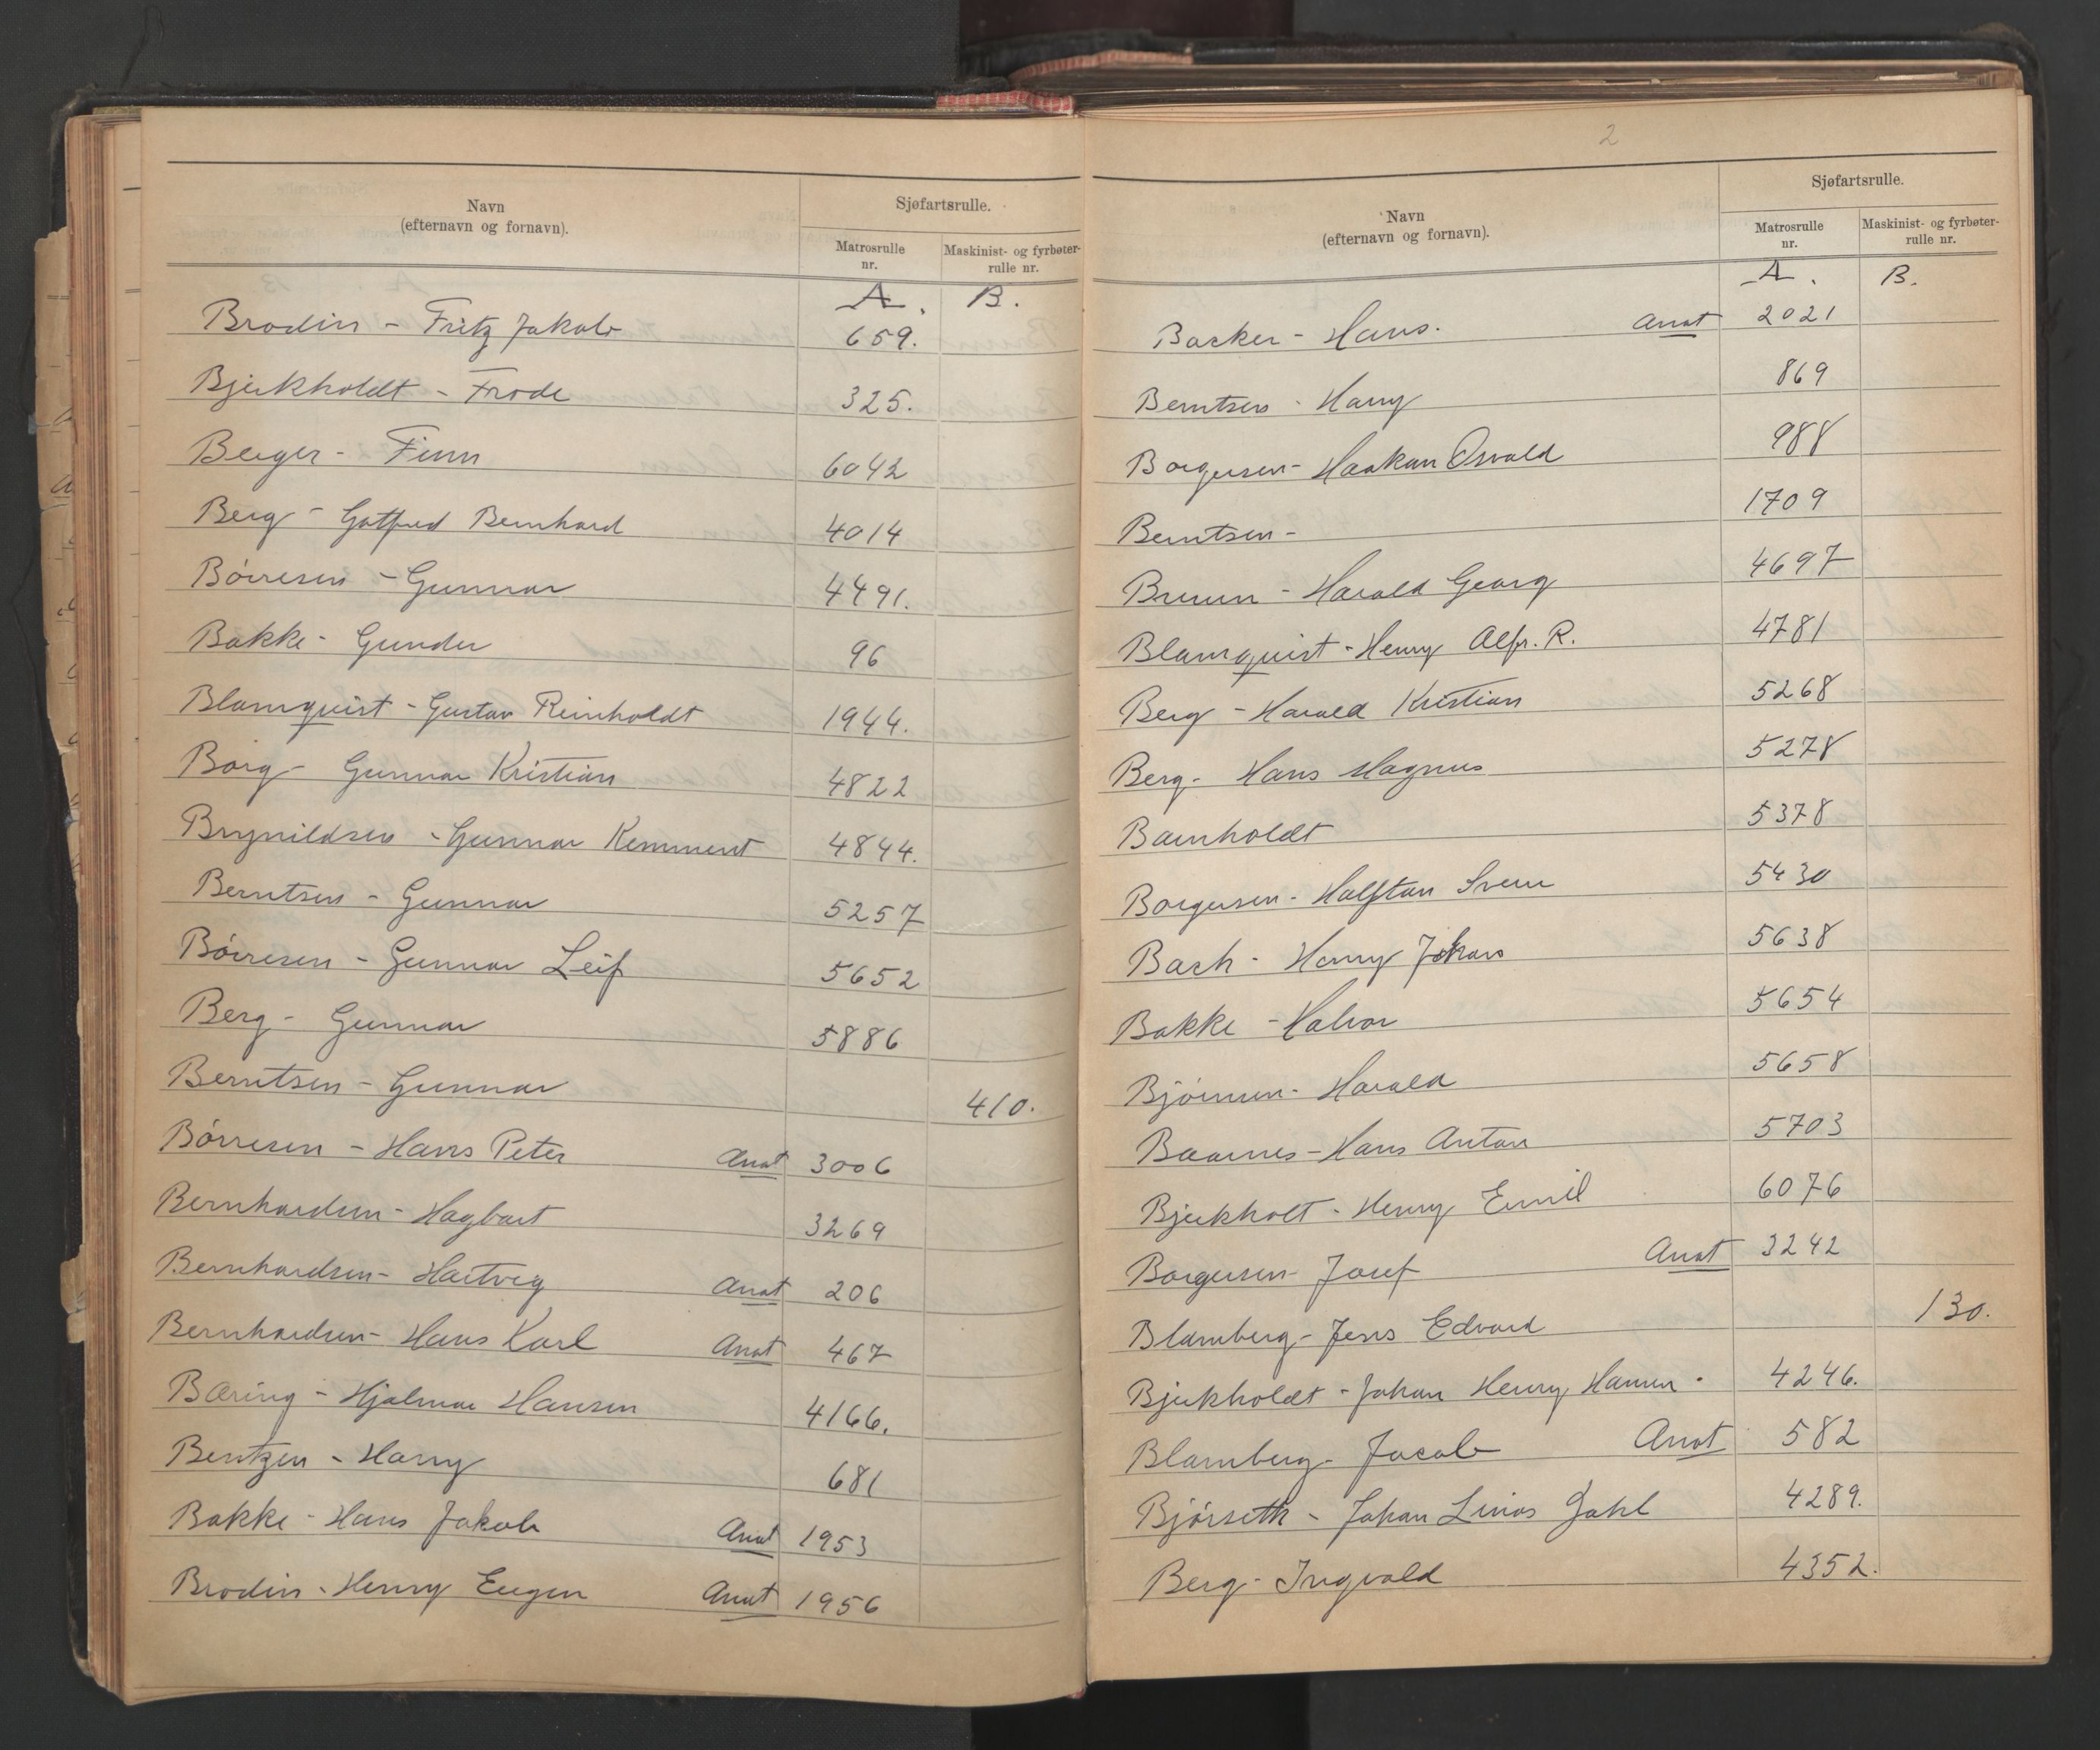 Navn
(efternavn og fornavn).
Sjøfartsrulle.
Matrosrulle nr.
Maskinist- og fyrbøter-rulle nr.
A. B.
Brodin - Fritz Jakob 659.
Bjerkholdt - Frode 325.
Berger - Finn 6042
Berg - Gotfred Bernhard 4014
Börresen - Gunnar 4491.
Bakke - Gunder 96
Blomquist - Gustav Reinholdt 1944.
Borg - Gunnar Kristian 4822
Brynildsen - Gunnar Kemment 4844.
Berntsen - Gunnar 5257
Börresen - Gunnar Leif 5652
Berg - Gunnar 5886
Berntsen - Gunnar 410.
Börresen - Hans Peter Anat 3006
Bernhardsen - Hagbart 3269
Bernhardsen - Hartvig Anat 206
Bernhardsen - Hans Karl Anat 467
Bæring - Hjalmar Hansen 4166.
Bentzen - Harry 681
Bakke - Hans Jakob Anat 1953
Brodin - Henry Eugen Anat 1956
2
Navn
(efternavn og fornavn).
Sjøfartsrulle.
Matrosrulle nr.
Maskinist- og fyrbøter-rulle nr.
A. B.
Backer - Hans. Anat 2021
Berntsen - Harry 869
Borgersen - Haakon Osvald 988
Berntsen - 1709
Bruun - Harald Georg 4697
Blomquist - Henry Alfr. R. 4781
Berg - Harald Kristian 5268
Berg - Hans Magnus 5278
Barnholdt 5378
Borgersen - Halftan Svern 5430
Bach - Henry Johan 5638
Bakke - Halvor 5654
Björnsen - Harald 5658
Baarnes - Hans Anton 5703
Bjerkholt - Henry Emil 6076
Borgersen - Josef Anat 3242
Blomberg - Jens Edvard 130.
Bjerkholdt - Johan Henry Hansen 4246.
Blomberg - Jacob Anat 582
Björseth - Johan Linos Dahl 4289.
Berg - Ingvald 4352.